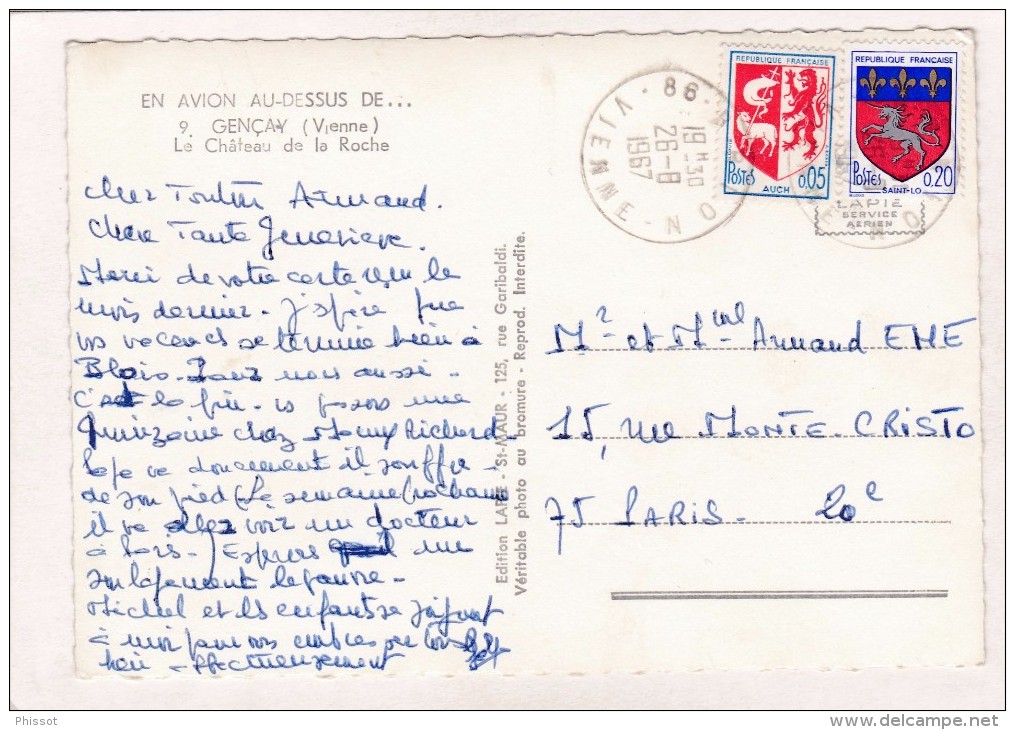 EN AVION AU-DESSUS DE...
9. GENÇAY (Vienne)
Le Château de la Roche
Cher Tonton Armand.
Chère Tante Geneviève.
Merci de votre carte reçu le
mois dernier. J'espère que
vos vacances se termine bien à
Blois. Pour nous aussi
c'est la fin. passons une
Quinzaine chez Mamy Richard
va doucement il souffre
de son pied (La semaine prochaine
il va allez voir un docteur
à Paris.) Espérons une
soulagement le pauvre
Michel et les enfants se joignent
à moi pour vous
bien affectueusement
Edition LAPIE - St-MAUR - 125, rue Garibaldi.
Véritable photo au bromure - Reprod. Interdite.
86
VIENNE - N
19H30
26-8
1967
REPUBLIQUE FRANÇAISE
POSTES
0,05
AUCH
REPUBLIQUE FRANÇAISE
POSTES
0,20
SAINT-LO
LAPIE
SERVICE
AERIEN
Mr et Mme Armand EME
15, rue MONTE-CRISTO
75 PARIS - 20e
Phissot
delcampe.net